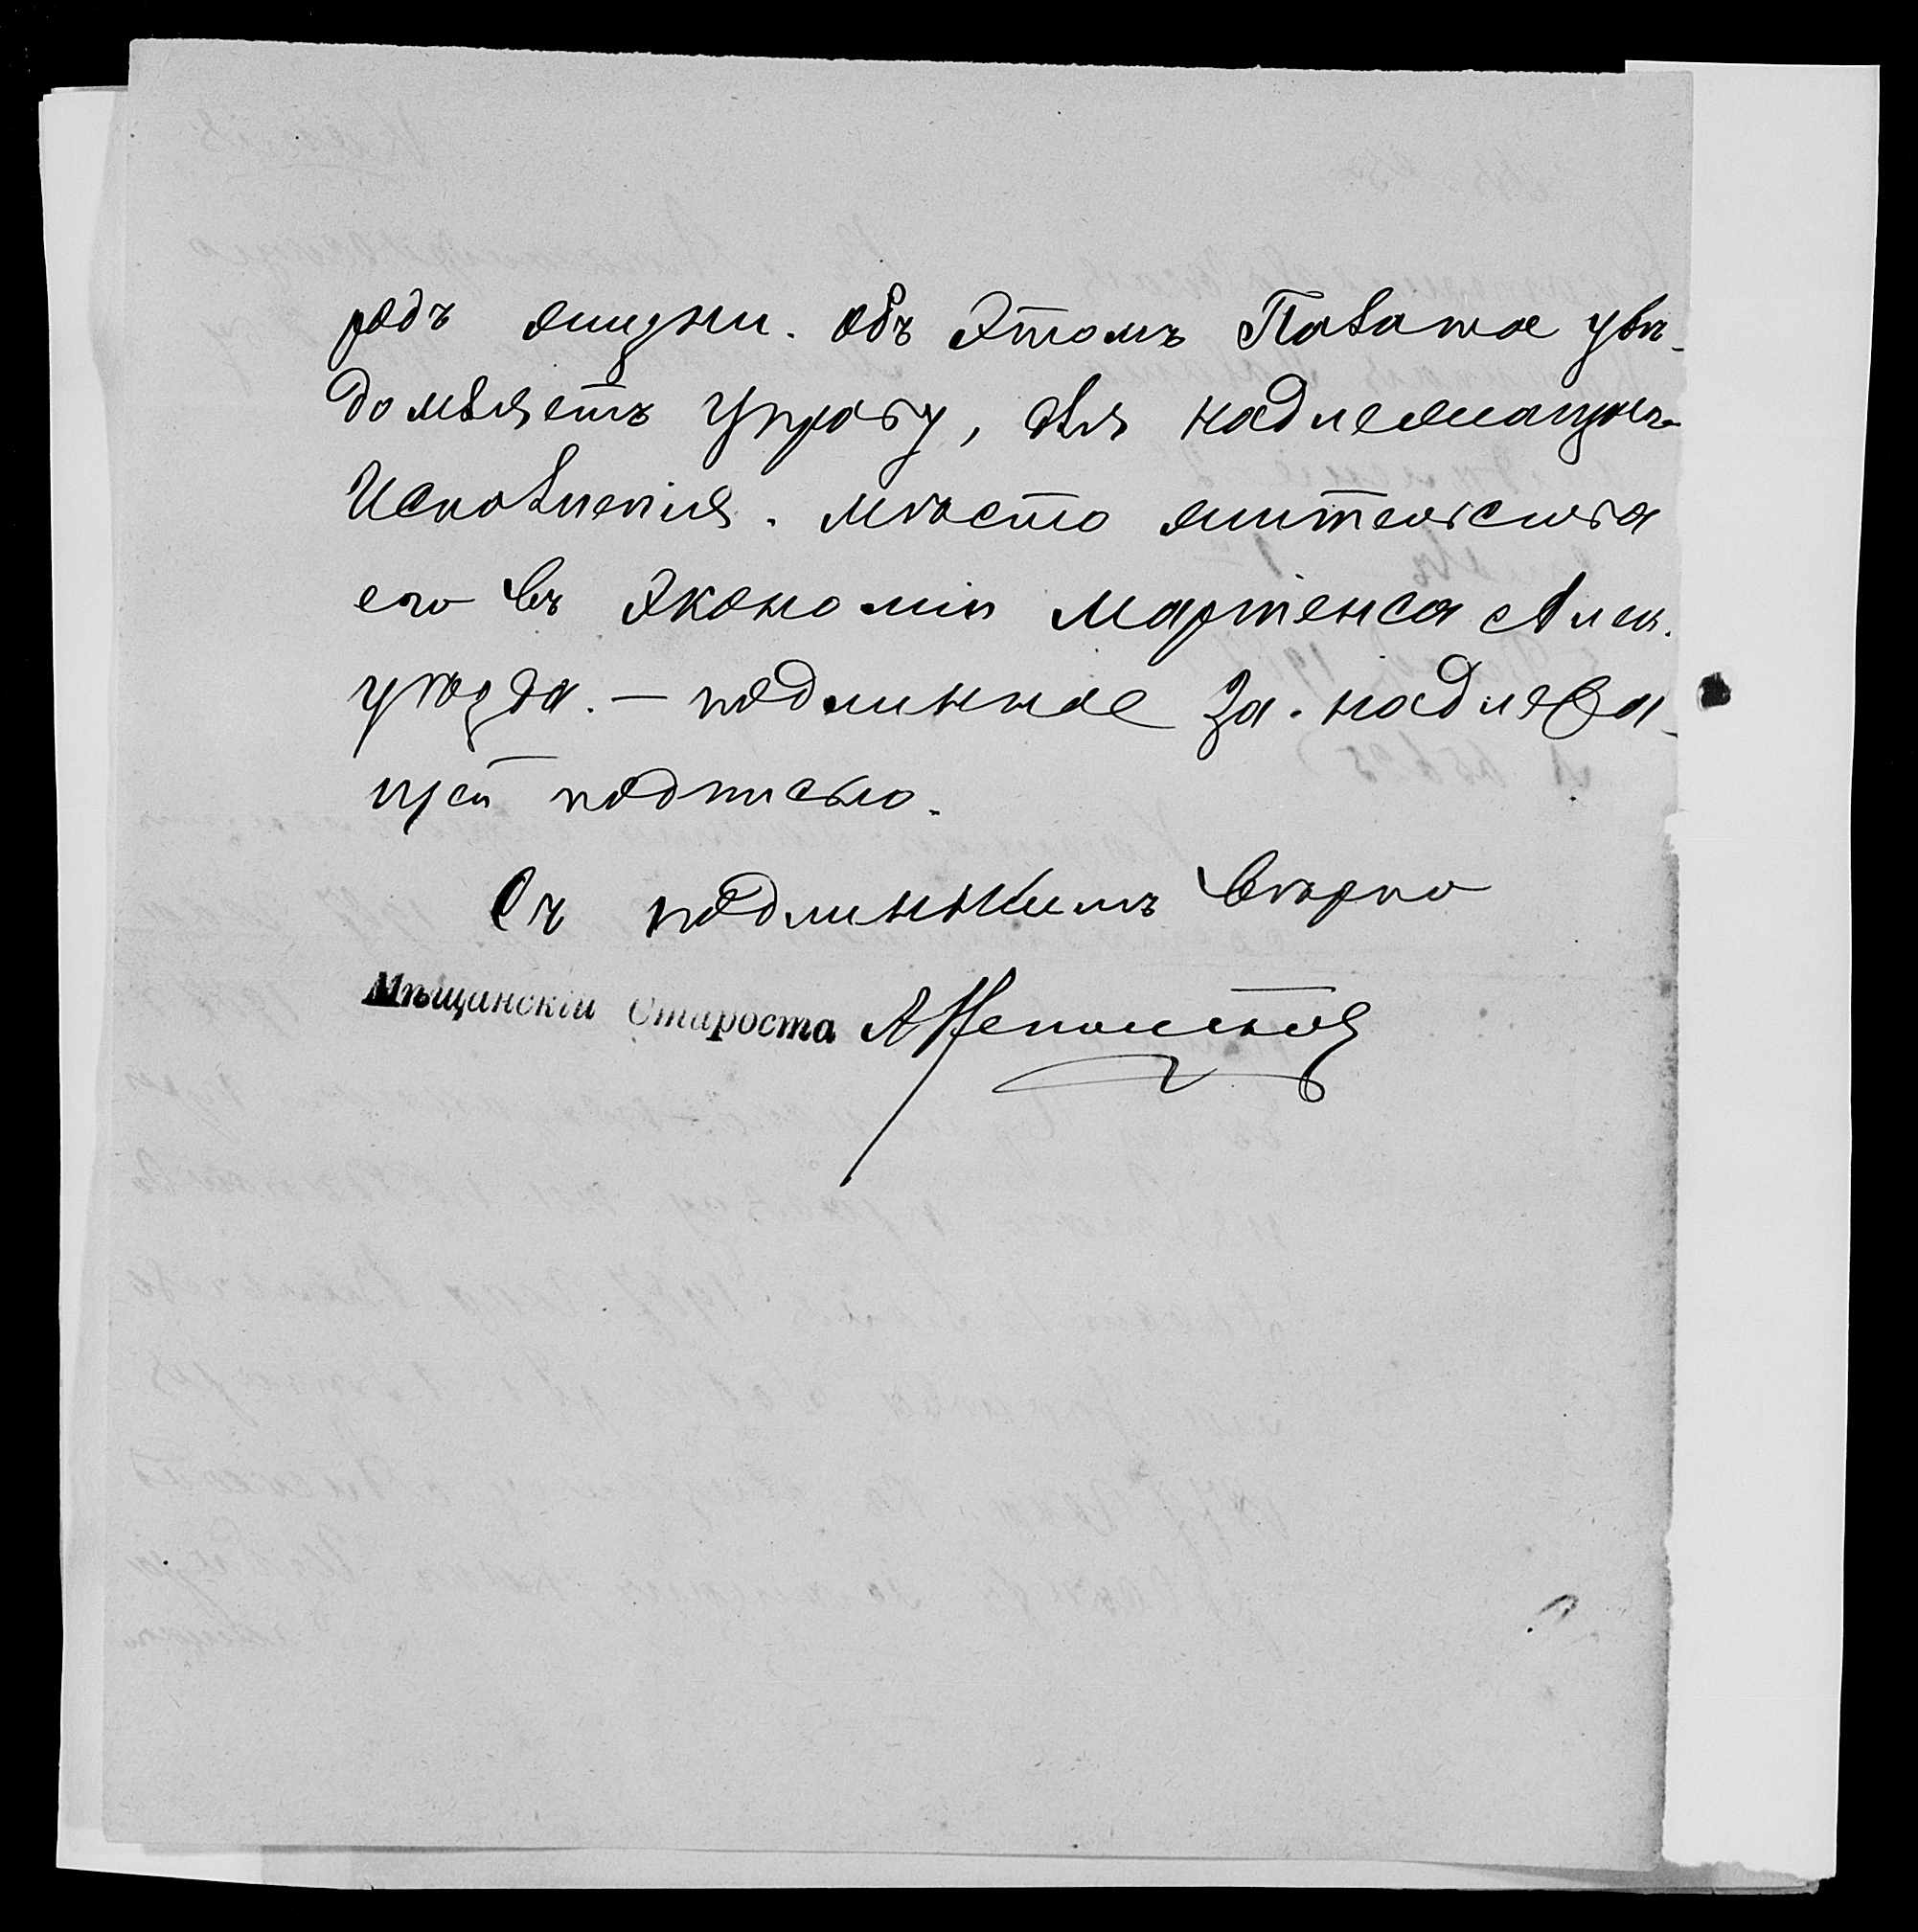 родъ жизни. объ Этомъ Палата увѣ-
домляетъ Управу, для надлежащаго
Исполненія. мѣсто жительства
его въ Экономіи Мартенса Алек.
уѣзда. — подлинное За. надлежа-
щей подписью.
Съ подлиннымъ Вѣрно
Мѣщанскій Староста А